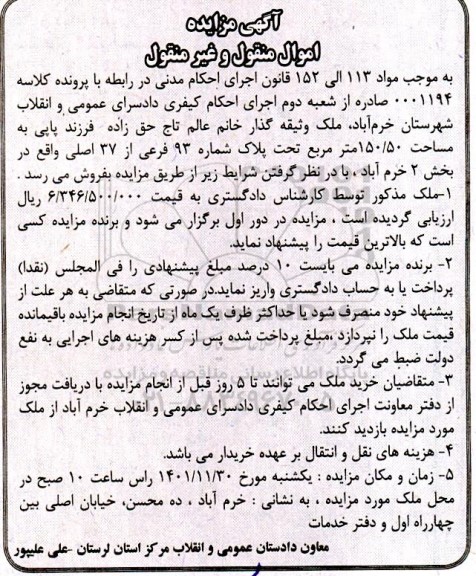 آگهی مزایده
اموال منقول و غیر منقول
به موجب مواد ۱۱۳ الی ۱۵۲ قانون اجرای احکام مدنی در رابطه با پرونده کلاسه
۰۰۰۱۱۹۴ صادره از شعبه دوم اجرای احکام کیفری دادسرای عمومی و انقلاب
شهرستان خرم‌آباد، ملک وثیقه گذار خانم عالم تاج حق زاده فرزند پاپی به
مساحت ۱۵۰/۵۰متر مربع تحت پلاک شماره ۹۳ فرعی از ۳۷ اصلی واقع در
بخش ۲ خرم آباد ، با در نظر گرفتن شرایط زیر از طریق مزایده بفروش می رسد .
۱-ملک مذکور توسط کارشناس دادگستری به قیمت ۶/۳۴۶/۵۰۰/۰۰۰ ریال
ارزیابی گردیده است ، مزایده در دور اول برگزار می شود و برنده مزایده کسی
است که بالاترین قیمت را پیشنهاد نماید.
۲- برنده مزایده می بایست ۱۰ درصد مبلغ پیشنهادی را فی المجلس (نقدا)
پرداخت یا به حساب دادگستری واریز نماید.در صورتی که متقاضی به هر علت از
پیشنهاد خود منصرف شود یا حداکثر ظرف یک ماه از تاریخ انجام مزایده باقیمانده
قیمت ملک را نپردازد ،مبلغ پرداخت شده پس از کسر هزینه های اجرایی به نفع
دولت ضبط می گردد.
۳- متقاضیان خرید ملک می توانند تا ۵ روز قبل از انجام مزایده با دریافت مجوز
از دفتر معاونت اجرای احکام کیفری دادسرای عمومی و انقلاب خرم آباد از ملک
مورد مزایده بازدید کنند.
۴- هزینه های نقل و انتقال بر عهده خریدار می باشد.
۵- زمان و مکان مزایده : یکشنبه مورخ ۱۴۰۱/۱۱/۳۰ راس ساعت ۱۰ صبح در
محل ملک مورد مزایده ، به نشانی : خرم آباد ، ده محسن، خیابان اصلی بین
چهارراه اول و دفتر خدمات
معاون دادستان عمومی و انقلاب مرکز استان لرستان -علی علیپور